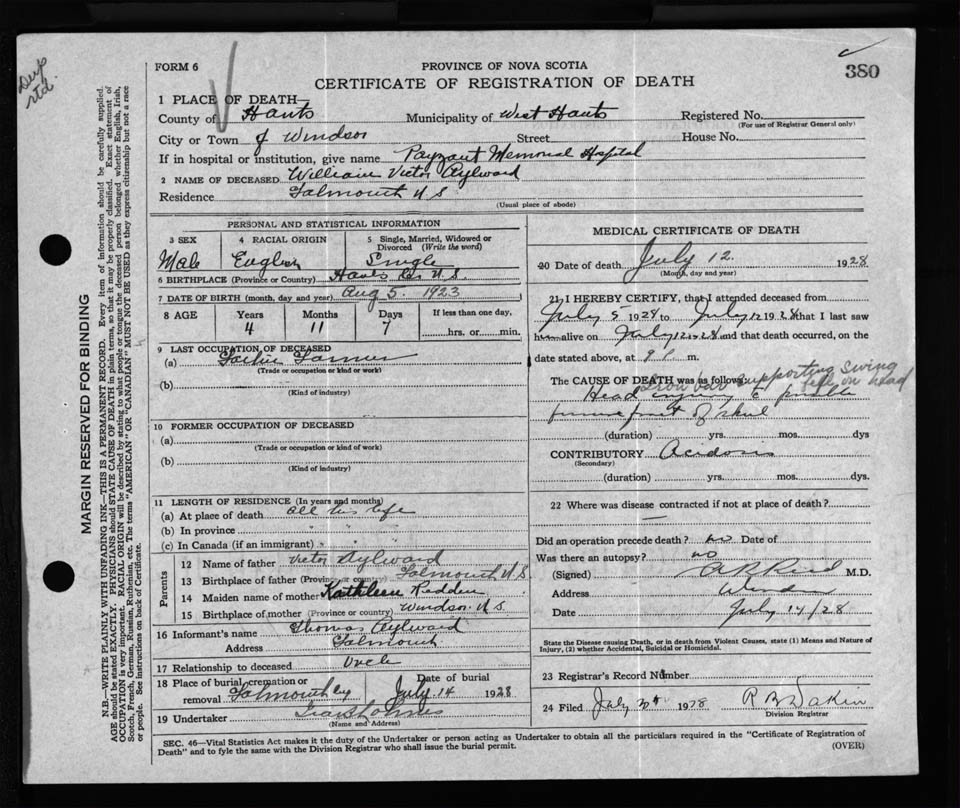 Dup
rtd.
FORM 6
PROVINCE OF NOVA SCOTIA
380
CERTIFICATE OF REGISTRATION OF DEATH
MARGIN RESERVED FOR BINDING
N.B.—WRITE PLAINLY WITH UNFADING INK—THIS IS A PERMANENT RECORD. Every item of information should be carefully supplied.
AGE should be stated EXACTLY. PHYSICIANS should STATE CAUSE OF DEATH in plain terms, so that it may be properly classified. Exact statement of
OCCUPATION is very important. RACIAL ORIGIN will be described by stating to what people or tongue the deceased person belonged whether English, Irish,
Scotch, French, German, Russian, Ruthenian, etc. The terms "AMERICAN" OR "CANADIAN" MUST NOT BE USED as they express citizenship but not a race
or people. See instructions on back of Certificate.
1 PLACE OF DEATH—
County of Hants Municipality of West Hants Registered No.
(For use of Registrar General only)
City or Town of Windsor Street House No.
If in hospital or institution, give name Payzant Memorial Hospital
2 NAME OF DECEASED William Victor Aylward
Residence Falmouth N S
(Usual place of abode)
PERSONAL AND STATISTICAL INFORMATION
3 SEX 4 RACIAL ORIGIN 5 Single, Married, Widowed or Divorced (Write the word)
Male English Single
6 BIRTHPLACE (Province or Country) Hants Co N.S.
7 DATE OF BIRTH (month, day and year) Aug 5. 1923
8 AGE Years Months Days If less than one day,
4 11 7 hrs. or min.
9 LAST OCCUPATION OF DECEASED
(a)
(Trade or occupation or kind of work)
(b)
(Kind of industry)
10 FORMER OCCUPATION OF DECEASED
(a)
(Trade or occupation or kind or work)
(b)
(Kind of industry)
11 LENGTH OF RESIDENCE (In years and months)
(a) At place of death all his life
(b) In province " " "
(c) In Canada (if an immigrant) " " "
Parents
12 Name of father Victor Aylward
13 Birthplace of father (Province or country) Falmouth N.S
14 Maiden name of mother Kathleen Redden
15 Birthplace of mother (Province or country) Windsor N.S
16 Informant's name Thomas Aylward
Address Falmouth
17 Relationship to deceased Uncle
18 Place of burial, cremation or Date of burial
removal Falmouth July 14 1928
19 Undertaker
(Name and Address)
MEDICAL CERTIFICATE OF DEATH
20 Date of death July 12. 1928
(Month, day and year)
21 I HEREBY CERTIFY, that I attended deceased from
July 5 1928 to July 12 1928 that I last saw
h alive on July 12 1928 and that death occurred, on the
date stated above, at 9 m.
The CAUSE OF DEATH was as follows:
Iron bar supporting swing
fell on head
Head injury & possible
of skul
(duration) yrs. mos. dys
CONTRIBUTORY Acidosis
(Secondary)
(duration) yrs. mos. dys.
22 Where was disease contracted if not at place of death?
Did an operation precede death? no Date of
Was there an autopsy? no
(Signed) M.D.
Address Windsor
Date July 14/28
State the Disease causing Death, or in death from Violent Causes, state (1) Means and Nature of
Injury, (2) whether Accidental, Suicidal or Homicidal.
23 Registrar's Record Number
24 Filed July 1928
Division Registrar
SEC. 46—Vital Statistics Act makes it the duty of the Undertaker or person acting as Undertaker to obtain all the particulars required in the "Certificate of Registration of
Death" and to fyle the same with the Division Registrar who shall issue the burial permit.
(OVER)